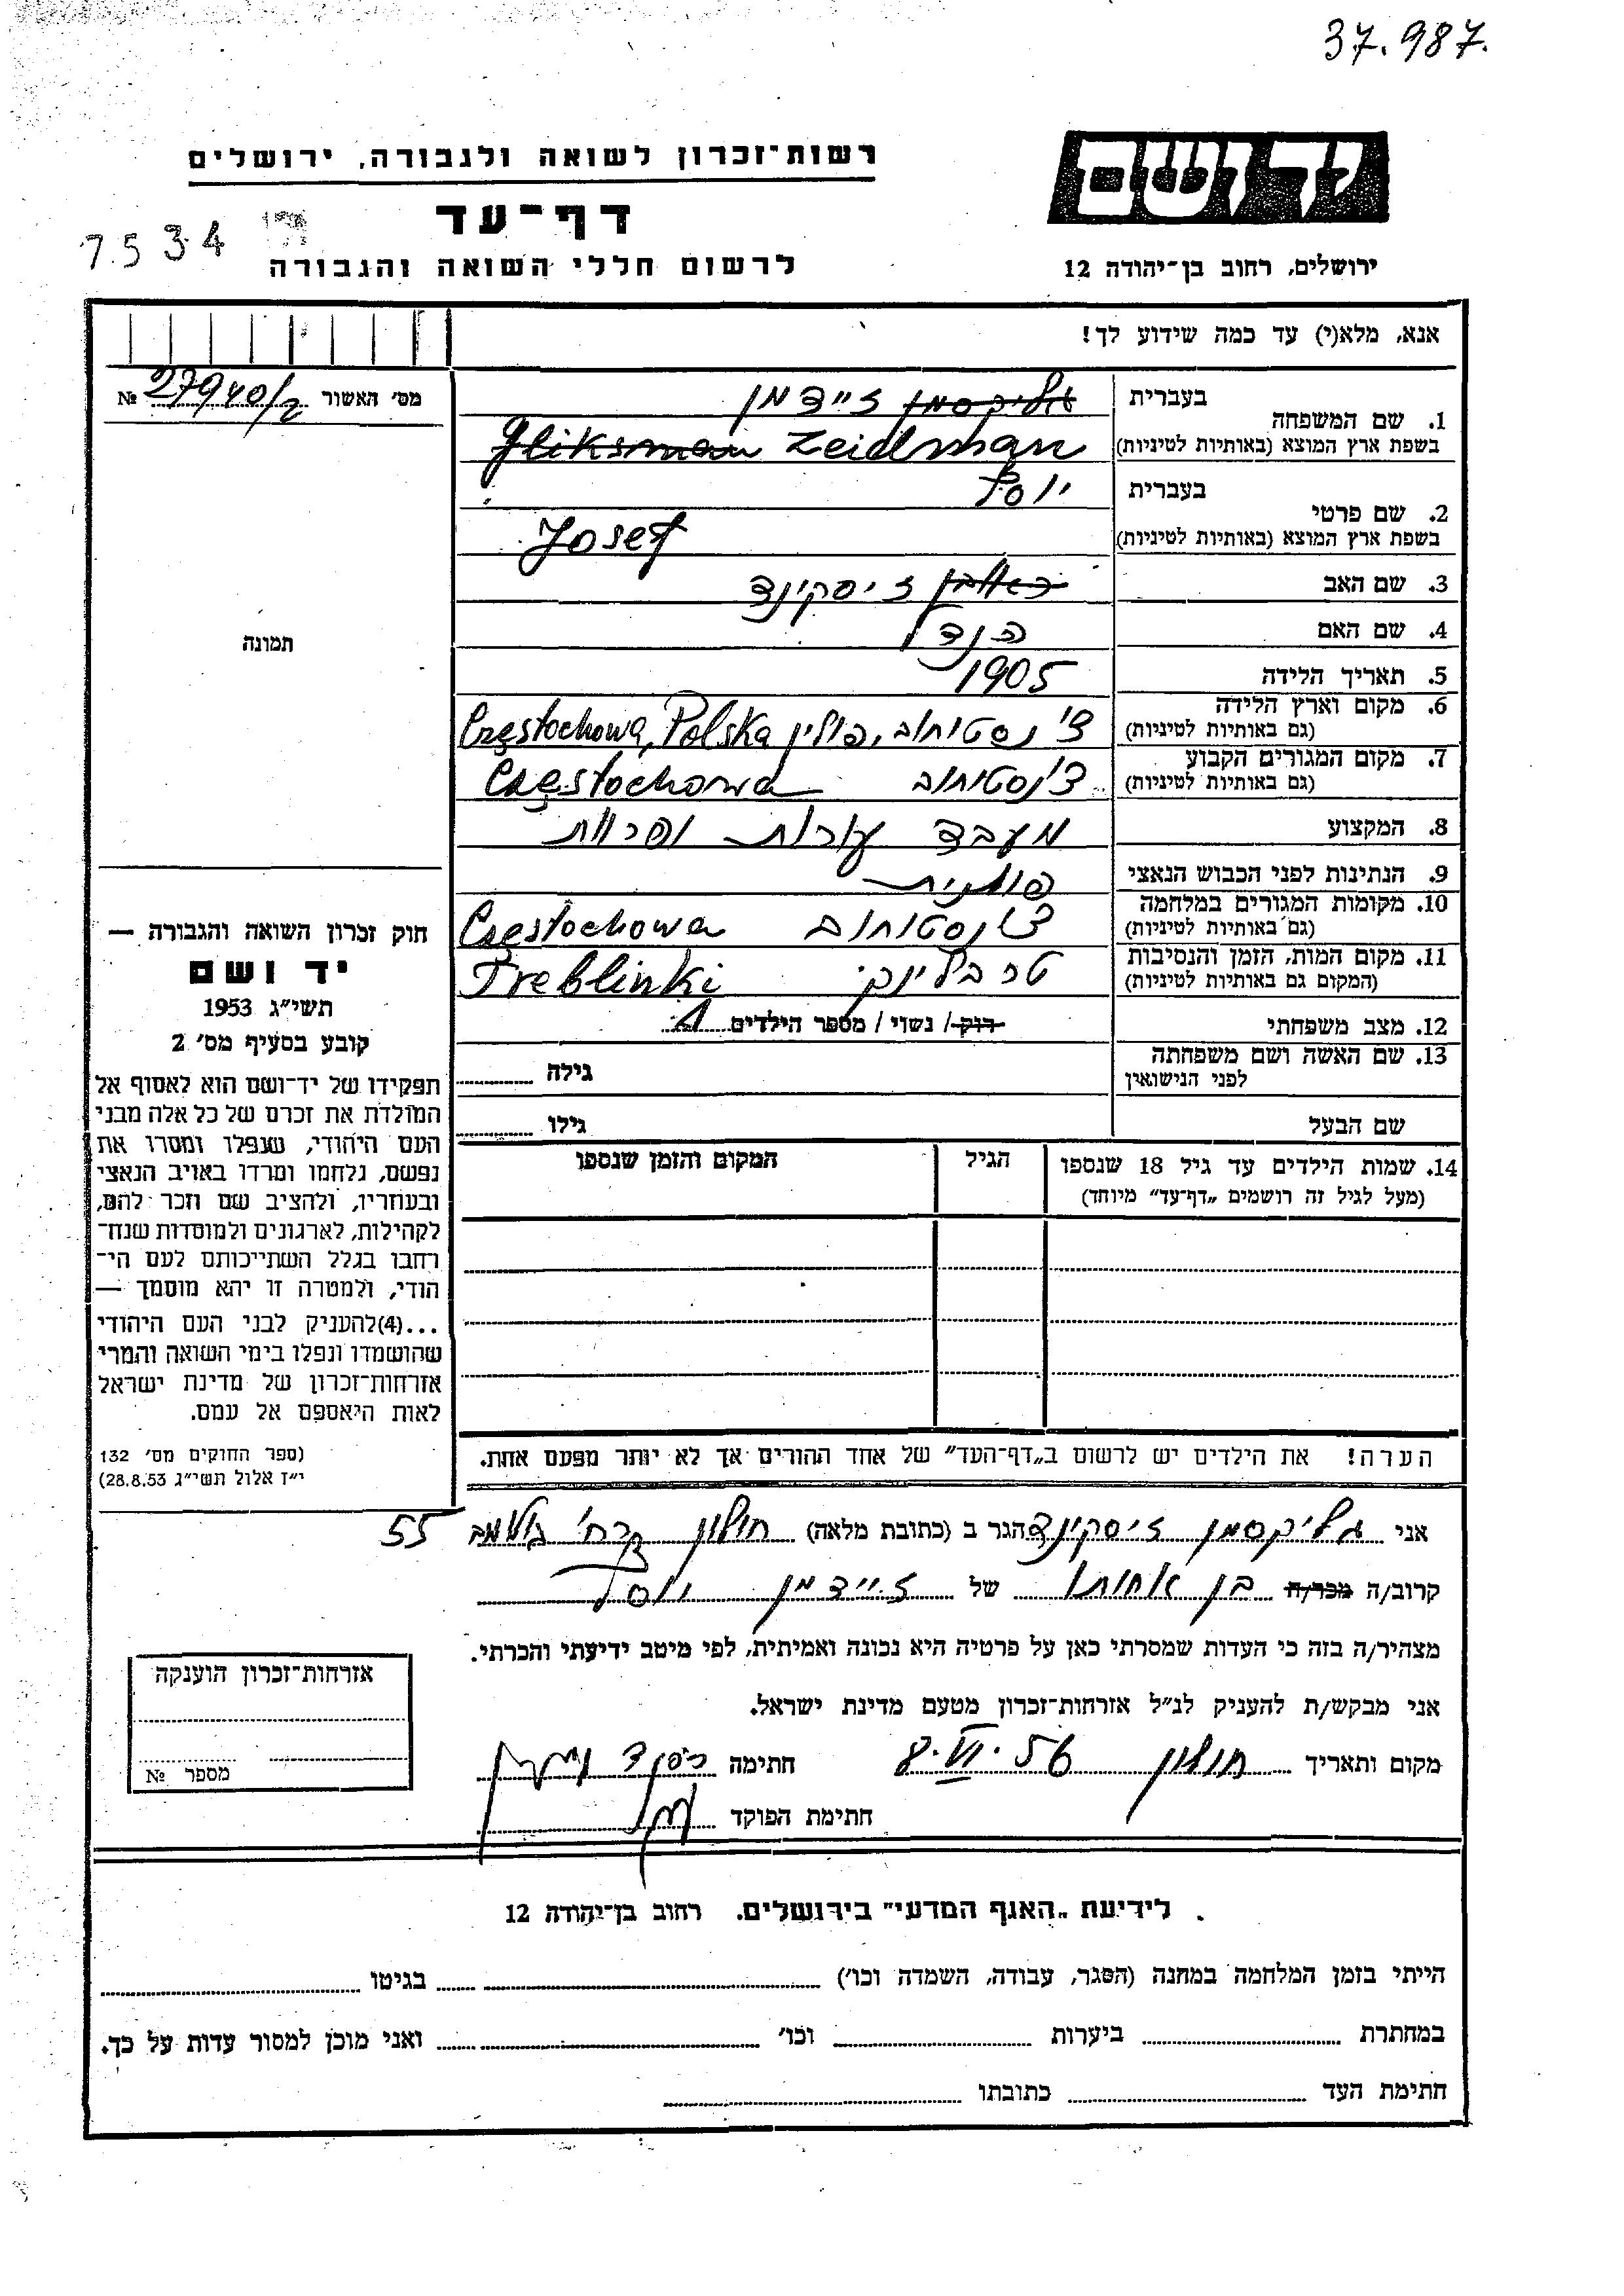 37.987.
רשות־זכרון לשואה ולגבורה, ירושלים
יד ושם
דף־עד
7534
לרשום חללי השואה והגבורה
ירושלים, רחוב בן־יהודה 12
אנא, מלא(י) עד כמה שידוע לך!
מס׳ האשור 27940/2 №
1. שם המשפחה
בעברית גליקסמן זיידמן
בשפת ארץ המוצא (באותיות לטיניות) Gliksman Zeidman
2. שם פרטי
בעברית יוסף
בשפת ארץ המוצא (באותיות לטיניות) Josef
3. שם האב זיסקינד
4. שם האם הנדל
5. תאריך הלידה 1905
6. מקום וארץ הלידה צ׳נסטוחוב, פולין Częstochowa, Polska
(גם באותיות לטיניות)
7. מקום המגורים הקבוע צ׳נסטוחוב Częstochowa
(גם באותיות לטיניות)
8. המקצוע מעבד עורות ופרוות
9. הנתינות לפני הכבוש הנאצי פולנית
10. מקומות המגורים במלחמה צ׳נסטוחוב Częstochowa
(גם באותיות לטיניות)
11. מקום המות, הזמן והנסיבות טרבלינקי Treblinki
(המקום גם באותיות לטיניות)
12. מצב משפחתי רוק/ נשוי / מספר הילדים 1
13. שם האשה ושם משפחתה גילה
לפני הנישואין
שם הבעל גילו
14. שמות הילדים עד גיל 18 שנספו הגיל המקום והזמן שנספו
(מעל לגיל זה רושמים „דף־עד״ מיוחד)
הערה! את הילדים יש לרשום ב„דף־העד״ של אחד ההורים אך לא יותר מפעם אחת.
תמונה
חוק זכרון השואה והגבורה —
יד ושם
תשי״ג 1953
קובע בסעיף מס׳ 2
תפקידו של יד־ושם הוא לאסוף אל
המולדת את זכרם של כל אלה מבני
העם היהודי, שנפלו ומסרו את
נפשם, נלחמו ומרדו באויב הנאצי
ובעוזריו, ולהציב שם וזכר להם,
לקהילות, לארגונים ולמוסדות שנח־
רחבו בגלל השתייכותם לעם הי־
הודי, ולמטרה זו יהא מוסמך —
...(4)להעניק לבני העם היהודי
שהושמדו ונפלו בימי השואה והמרי
אזרחות־זכרון של מדינת ישראל
לאות היאספם אל עמם.
(ספר החוקים מס׳ 132
י״ז אלול תשי״ג 28.8.53)
אני גליקסמן זיסקינד הגר ב (כתובת מלאה) חולון 55
קרוב/ה מכר/ה בן אחותו של זיידמן יוסף
מצהיר/ה בזה כי העדות שמסרתי כאן על פרטיה היא נכונה ואמיתית, לפי מיטב ידיעתי והכרתי.
אני מבקש/ת להעניק לנ״ל אזרחות־זכרון מטעם מדינת ישראל.
מקום ותאריך חולון 8.VI.56 חתימה
חתימת הפוקד
אזרחות־זכרון הוענקה
מספר №
לידיעת „האגף המדעי״ בירושלים. רחוב בן־יהודה 12
הייתי בזמן המלחמה במחנה (הסגר, עבודה, השמדה וכו׳) בגיטו
במחתרת ביערות וכו׳ ואני מוכן למסור עדות על כך.
חתימת העד כתובתו